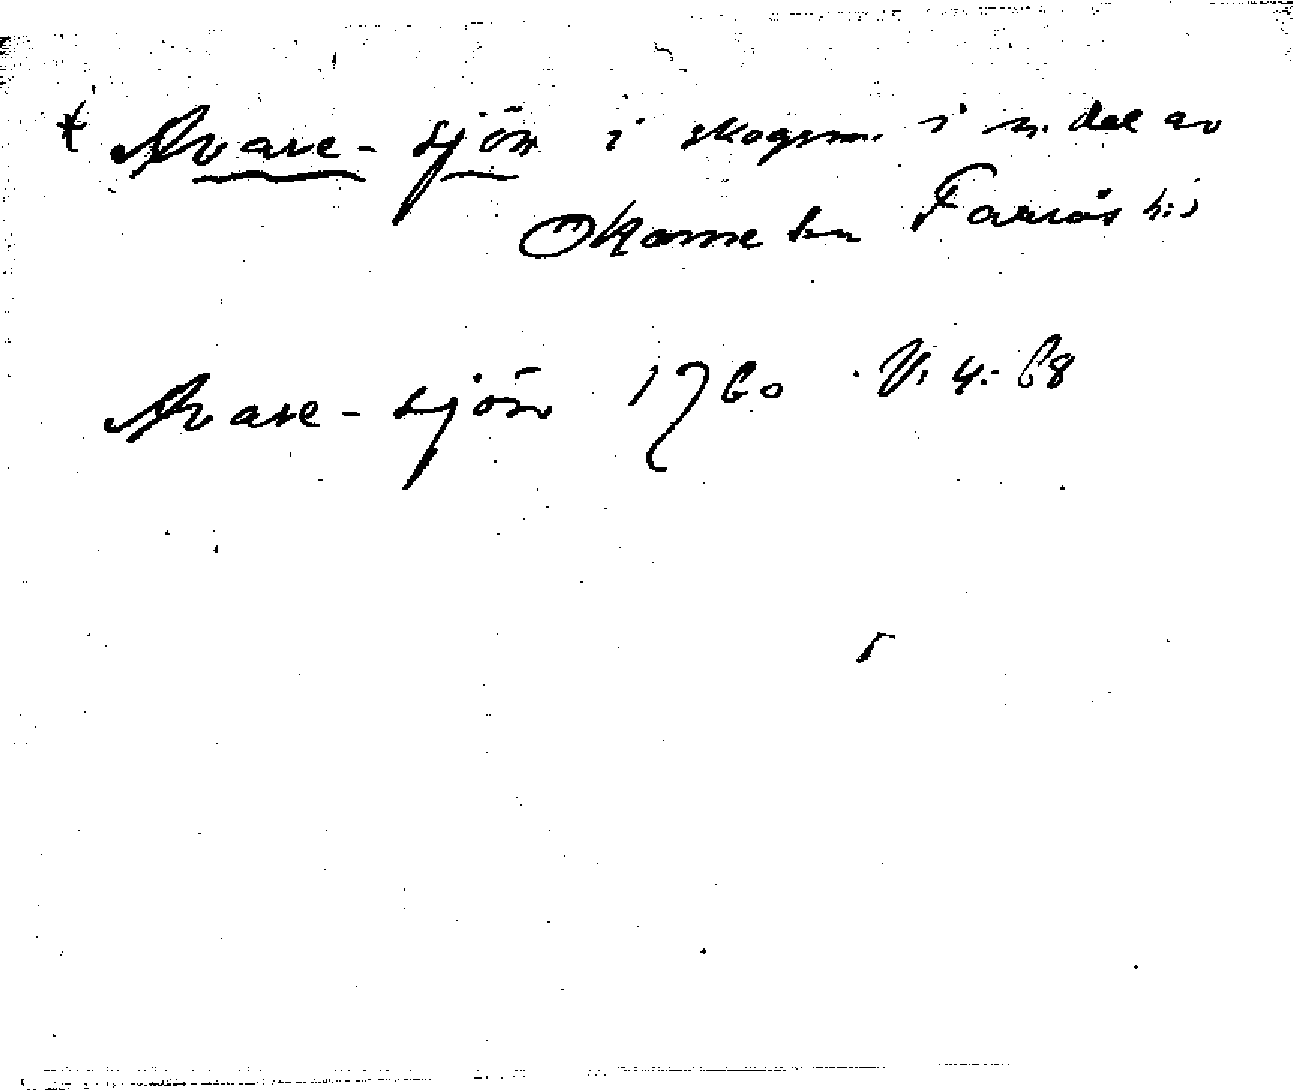 Svare-sjön i skogen i n. del av
Økome sn Faurås hd
Svare-sjön 1760 . V. 4: 68